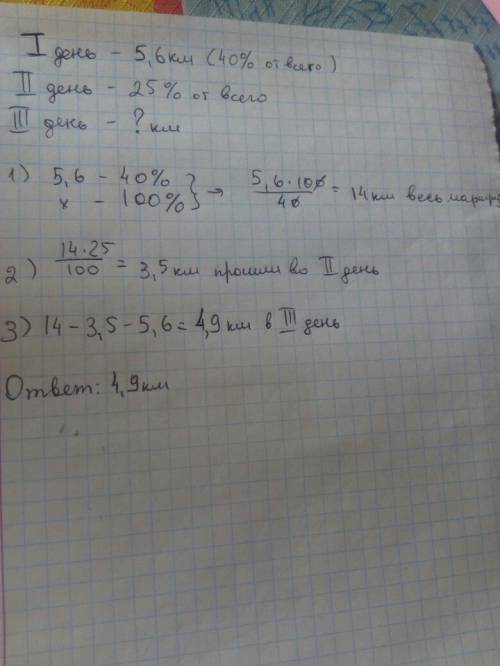 I день - 5,6 км (40% от всего)
II день - 25% от всего
III день - ? км
1) 5,6 - 40% } → 5,6·100/40 = 14 км весь
x - 100%
2) 14·25/100 = 3,5 км прошли во II день
3) 14 - 3,5 - 5,6 = 4,9 км в III день
Ответ: 4,9 км